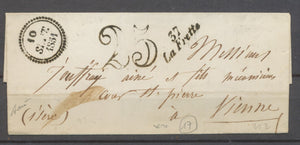 10
SEPT.
1851
25
37
La Frette
Messieurs
Jouffray ainé et fils mécaniciens
à cour St. pierre
à Vienne
(isère)
17